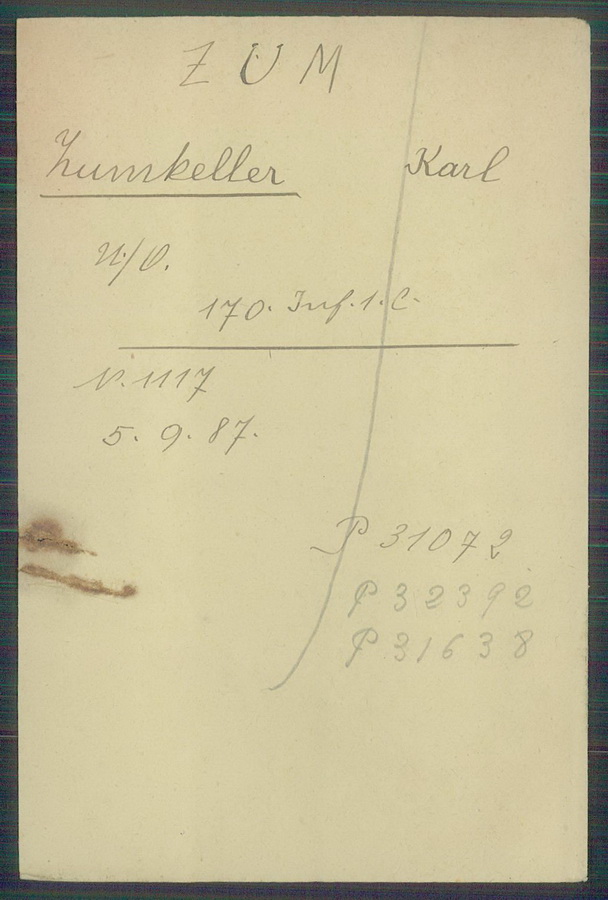 ZUM
Zumkeller Karl
U/O.
170. Inf. 1. C.
N. 1117
5. 9. 87.
P 31072
P 32392
P 31638